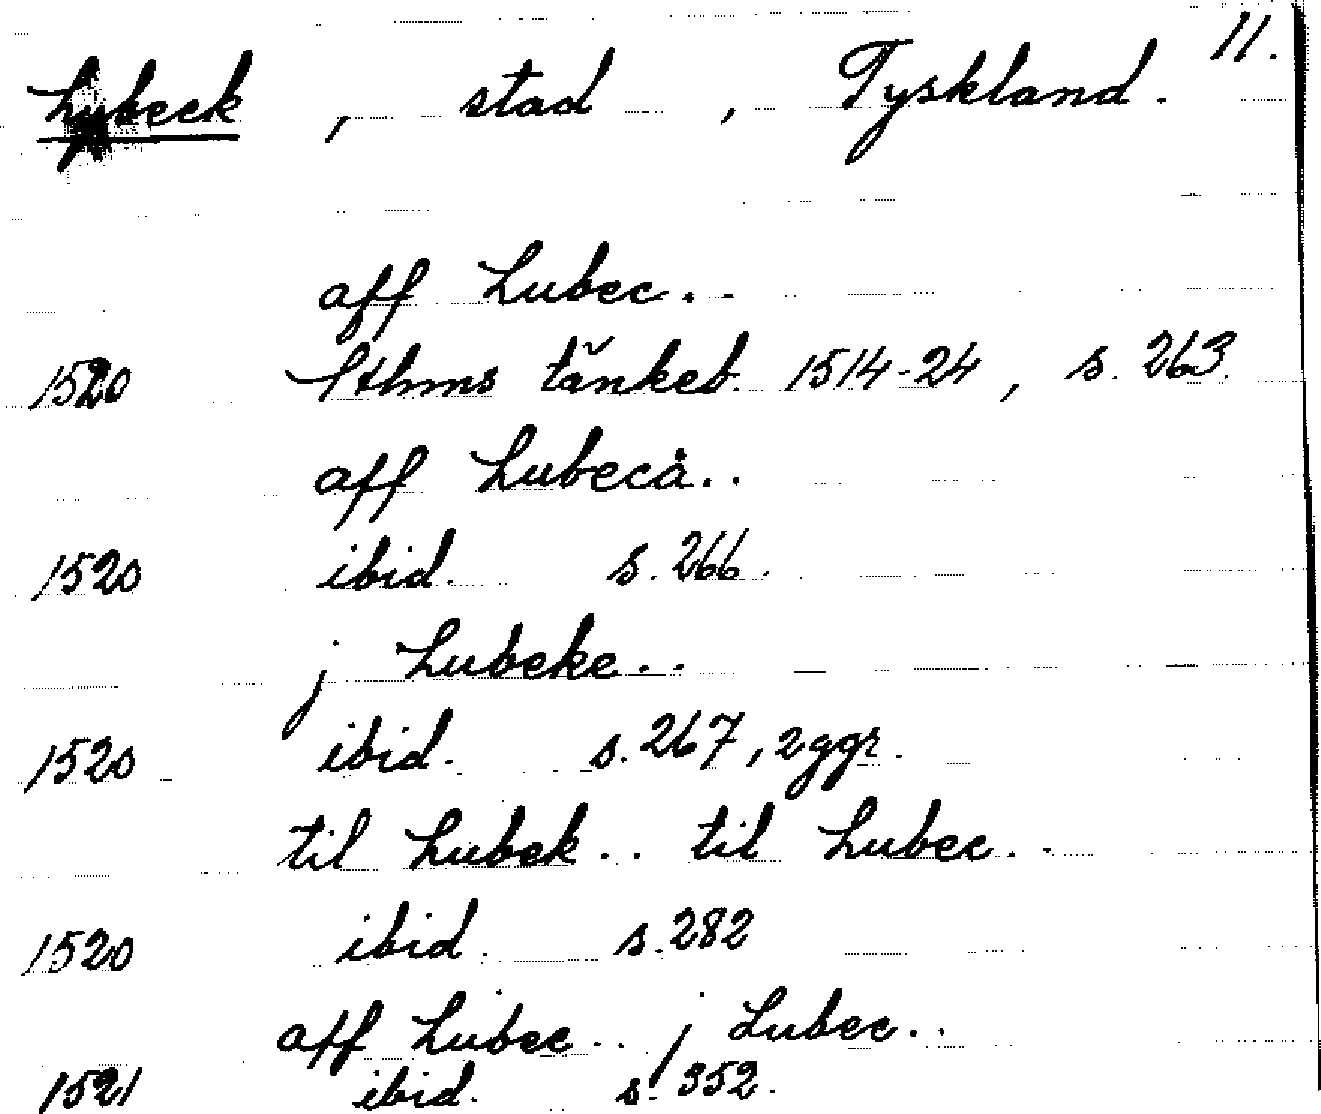 11.
Lybeck, stad, Tyskland.
aff Lubec..
1520 Sthms tänkeb. 1514-24, s. 263.
aff Lubecå..
1520 ibid. s. 266.
j Lubeke..
1520 ibid. s. 267, 2 ggr.
til Lubek.. til Lubec..
1520 ibid. s. 282
aff Lubec.. j Lubec..
1521 ibid. s. 352.